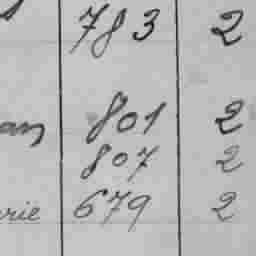 783 2
an 801 2
807 2
rie 679 2